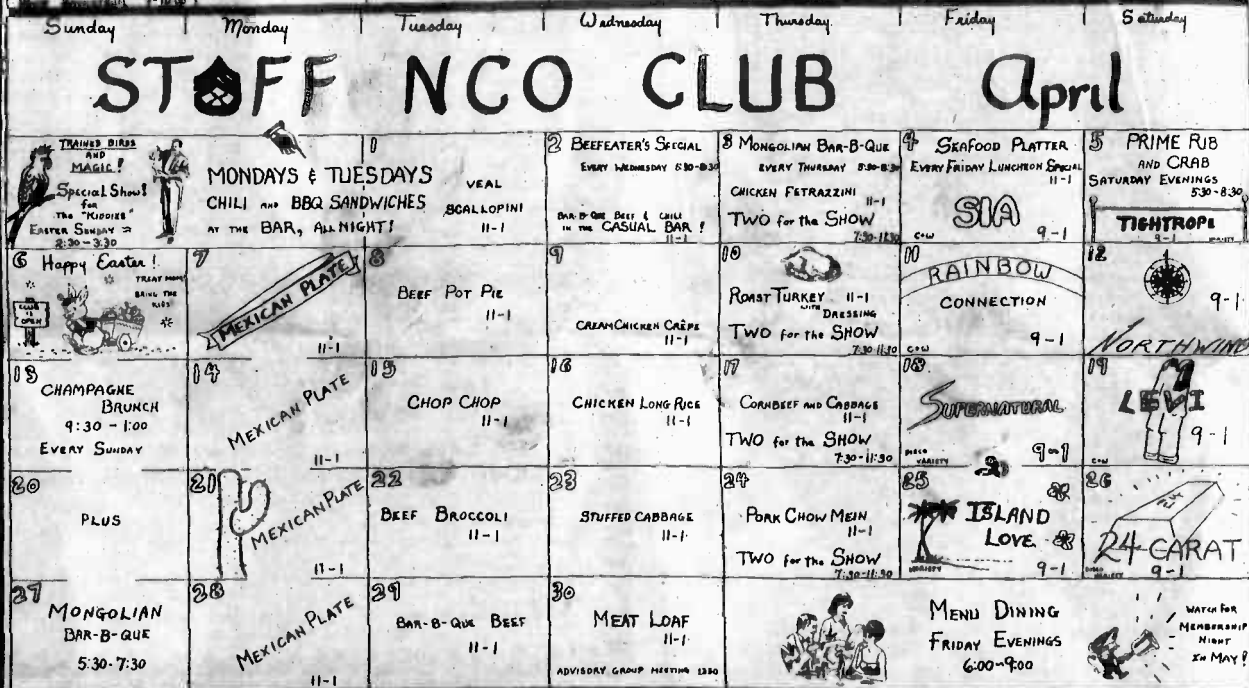 Sunday
Monday
Tuesday
Wednesday
Thursday
Friday
Saturday
STAFF NCO CLUB
April
TRAINED BIRDS
AND
MAGIC!
Special Show!
for
The "KIDDIES"
EASTER SUNDAY
2:30-3:30
MONDAYS & TUESDAYS
CHILI AND BBQ SANDWICHES
AT THE BAR, ALL NIGHT!
1
VEAL
SCALLOPINI
11-1
2 BEEFEATER'S SPECIAL
EVERY WEDNESDAY 5:30-8:30
BAR-B-QUE BEEF & CHILI
IN THE CASUAL BAR!
11-1
3 MONGOLIAN BAR-B-QUE
EVERY THURSDAY 5:30-8:30
CHICKEN FETRAZZINI
11-1
TWO for the SHOW
7:30-11:30
4 SEAFOOD PLATTER
EVERY FRIDAY LUNCHEON SPECIAL
11-1
SIA
COW
9-1
5 PRIME RIB
AND CRAB
SATURDAY EVENINGS
5:30-8:30
TIGHTROPE
9-1
VARIETY
6 Happy Easter!
TREAT MOM!
BRING THE
KIDS
CLUB
IS
OPEN
7
MEXICAN PLATE
11-1
8
BEEF POT PIE
11-1
9
CREAM CHICKEN CRÊPE
11-1
10
ROAST TURKEY 11-1
WITH
DRESSING
TWO for the SHOW
7:30-11:30
11
RAINBOW
CONNECTION
9-1
COW
12
9-1
NORTHWIND
13
CHAMPAGNE
BRUNCH
9:30-1:00
EVERY SUNDAY
14
MEXICAN PLATE
11-1
15
CHOP CHOP
11-1
16
CHICKEN LONG RICE
11-1
17
CORNBEEF AND CABBAGE
11-1
TWO for the SHOW
7:30-11:30
18
SUPERNATURAL
DISCO
VARIETY
9-1
19
LEVI
9-1
COW
20
PLUS
21
MEXICAN PLATE
11-1
22
BEEF BROCCOLI
11-1
23
STUFFED CABBAGE
11-1
24
PORK CHOW MEIN
11-1
TWO for the SHOW
7:30-11:30
25
ISLAND
LOVE
VARIETY
9-1
26
24-CARAT
DISCO
VARIETY
9-1
27
MONGOLIAN
BAR-B-QUE
5:30-7:30
28
MEXICAN PLATE
11-1
29
BAR-B-QUE BEEF
11-1
30
MEAT LOAF
11-1
ADVISORY GROUP MEETING 1330
MENU DINING
FRIDAY EVENINGS
6:00-9:00
WATCH FOR
MEMBERSHIP
NIGHT
IN MAY!